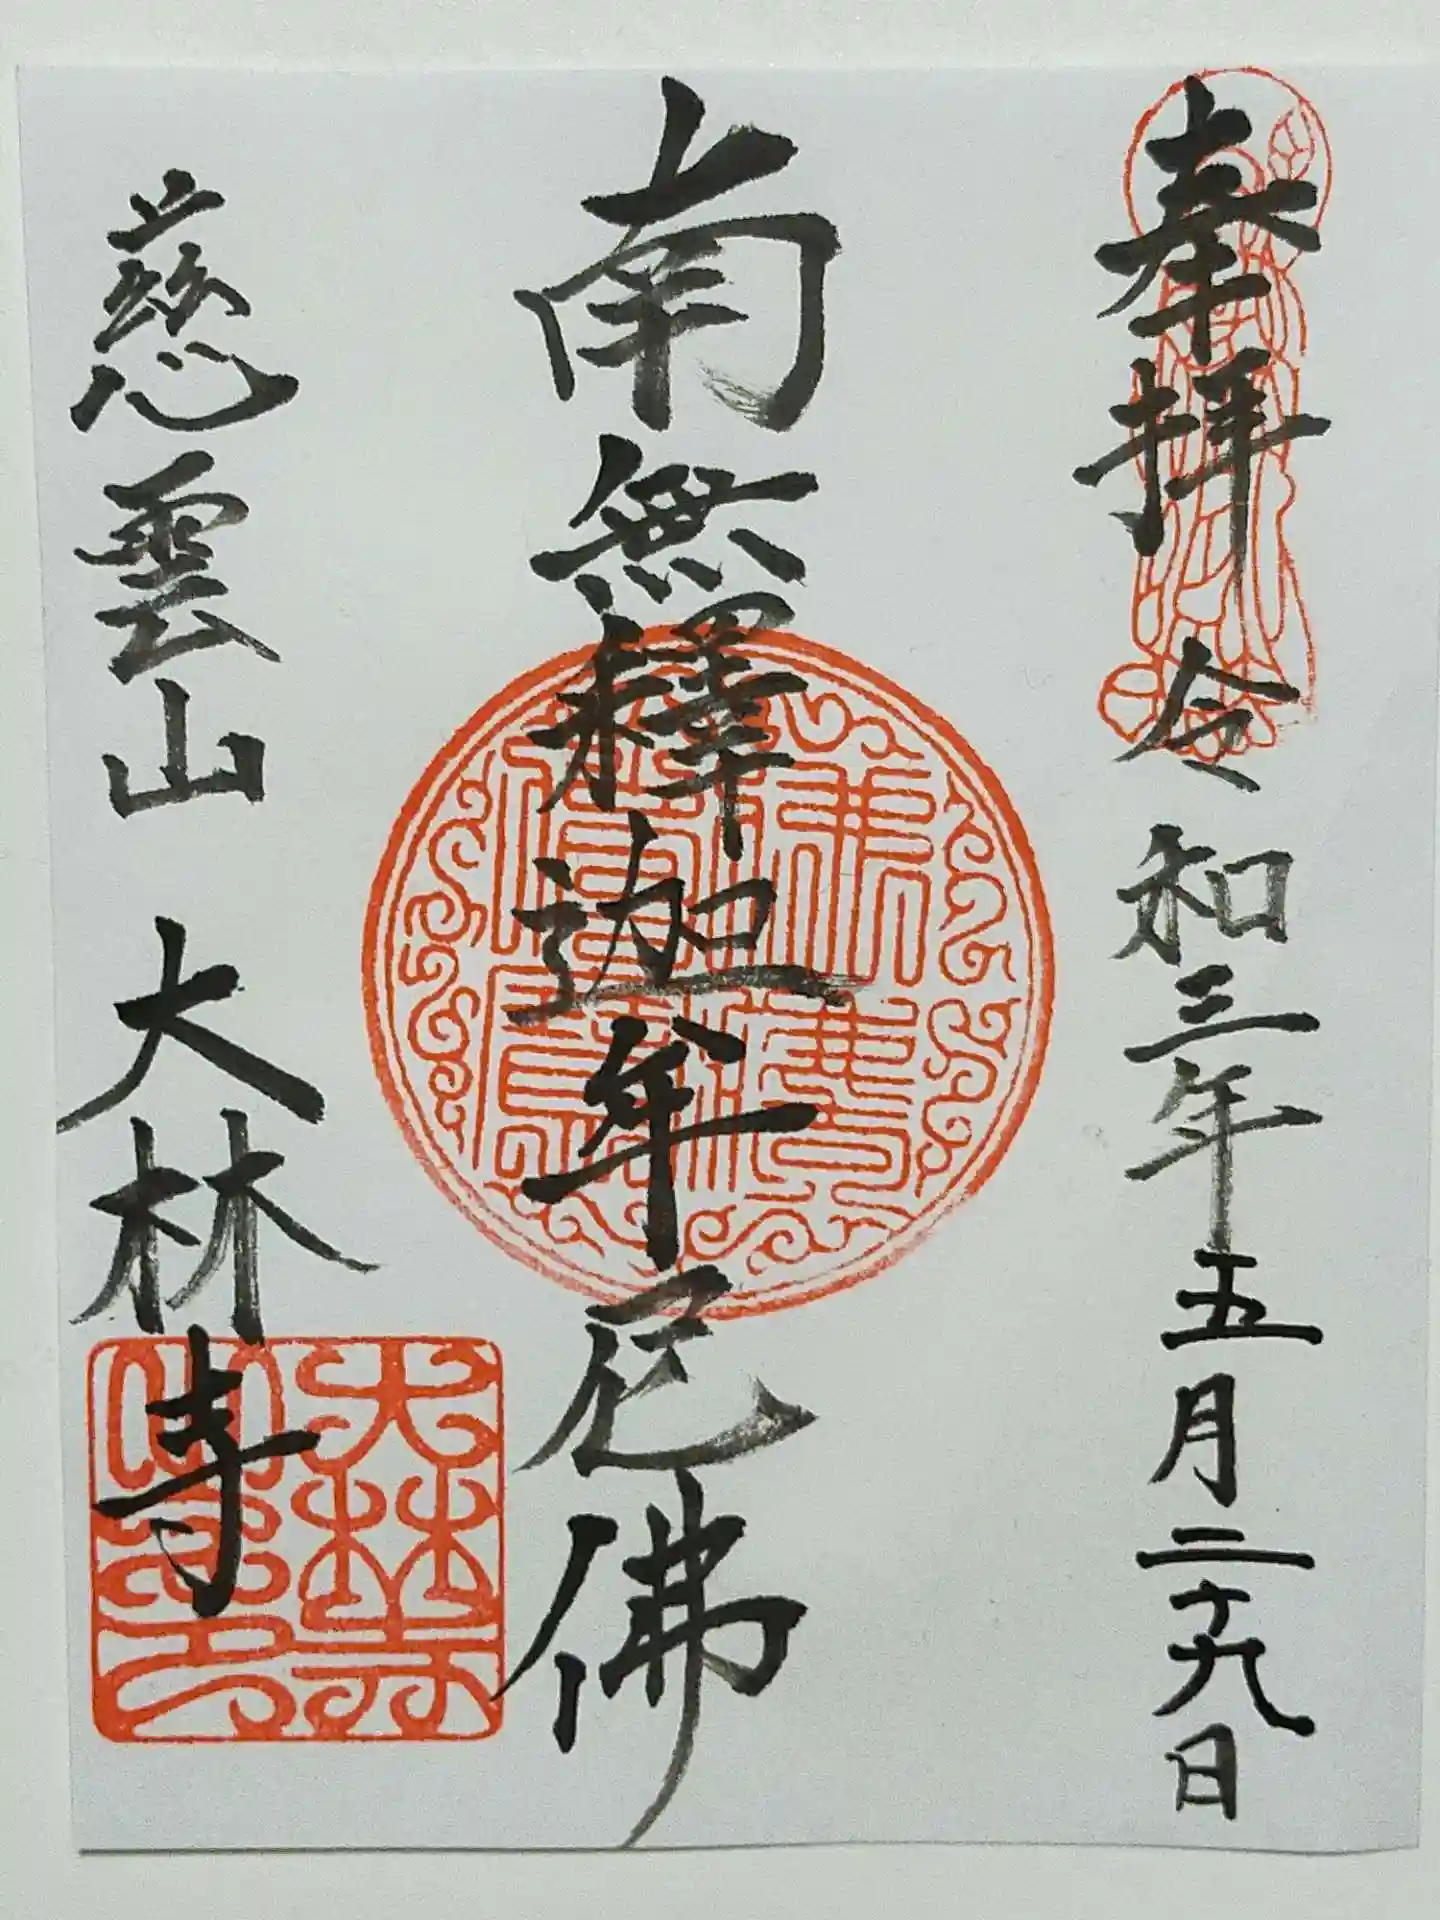 奉拜
令和三年五月二十九日
南無釋迦牟尼佛
慈雲山 大林寺
大林寺